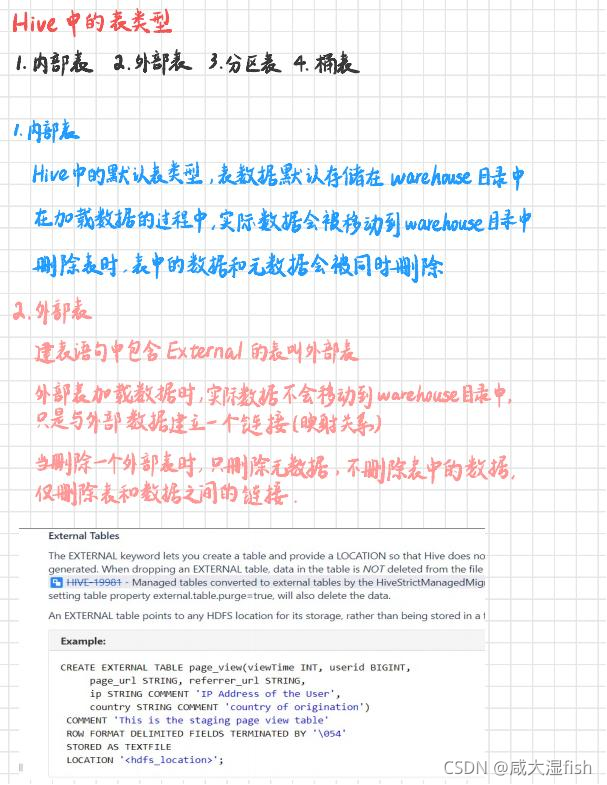 Hive 中的表类型
1.内部表 2.外部表 3.分区表 4.桶表
1.内部表
Hive中的默认表类型,表数据默认存储在 warehouse目录中
在加载数据的过程中,实际数据会被移动到warehouse目录中
删除表时,表中的数据和元数据会被同时删除
2.外部表
建表语句中包含External 的表叫外部表
外部表加载数据时,实际数据不会移动到warehouse目录中,
只是与外部数据建立一个链接(映射关系)
当删除一个外部表时,只删除元数据,不删除表中的数据,
仅删除表和数据之间的链接.
External Tables
The EXTERNAL keyword lets you create a table and provide a LOCATION so that Hive does no
generated. When dropping an EXTERNAL table, data in the table is NOT deleted from the file
HIVE-19981 - Managed tables converted to external tables by the HiveStrictManagedMig
setting table property external.table.purge=true, will also delete the data.
An EXTERNAL table points to any HDFS location for its storage, rather than being stored in a f
Example:
CREATE EXTERNAL TABLE page_view(viewTime INT, userid BIGINT,
page_url STRING, referrer_url STRING,
ip STRING COMMENT 'IP Address of the User',
country STRING COMMENT 'country of origination')
COMMENT 'This is the staging page view table'
ROW FORMAT DELIMITED FIELDS TERMINATED BY '\054'
STORED AS TEXTFILE
LOCATION '<hdfs_location>';
CSDN @咸大湿fish